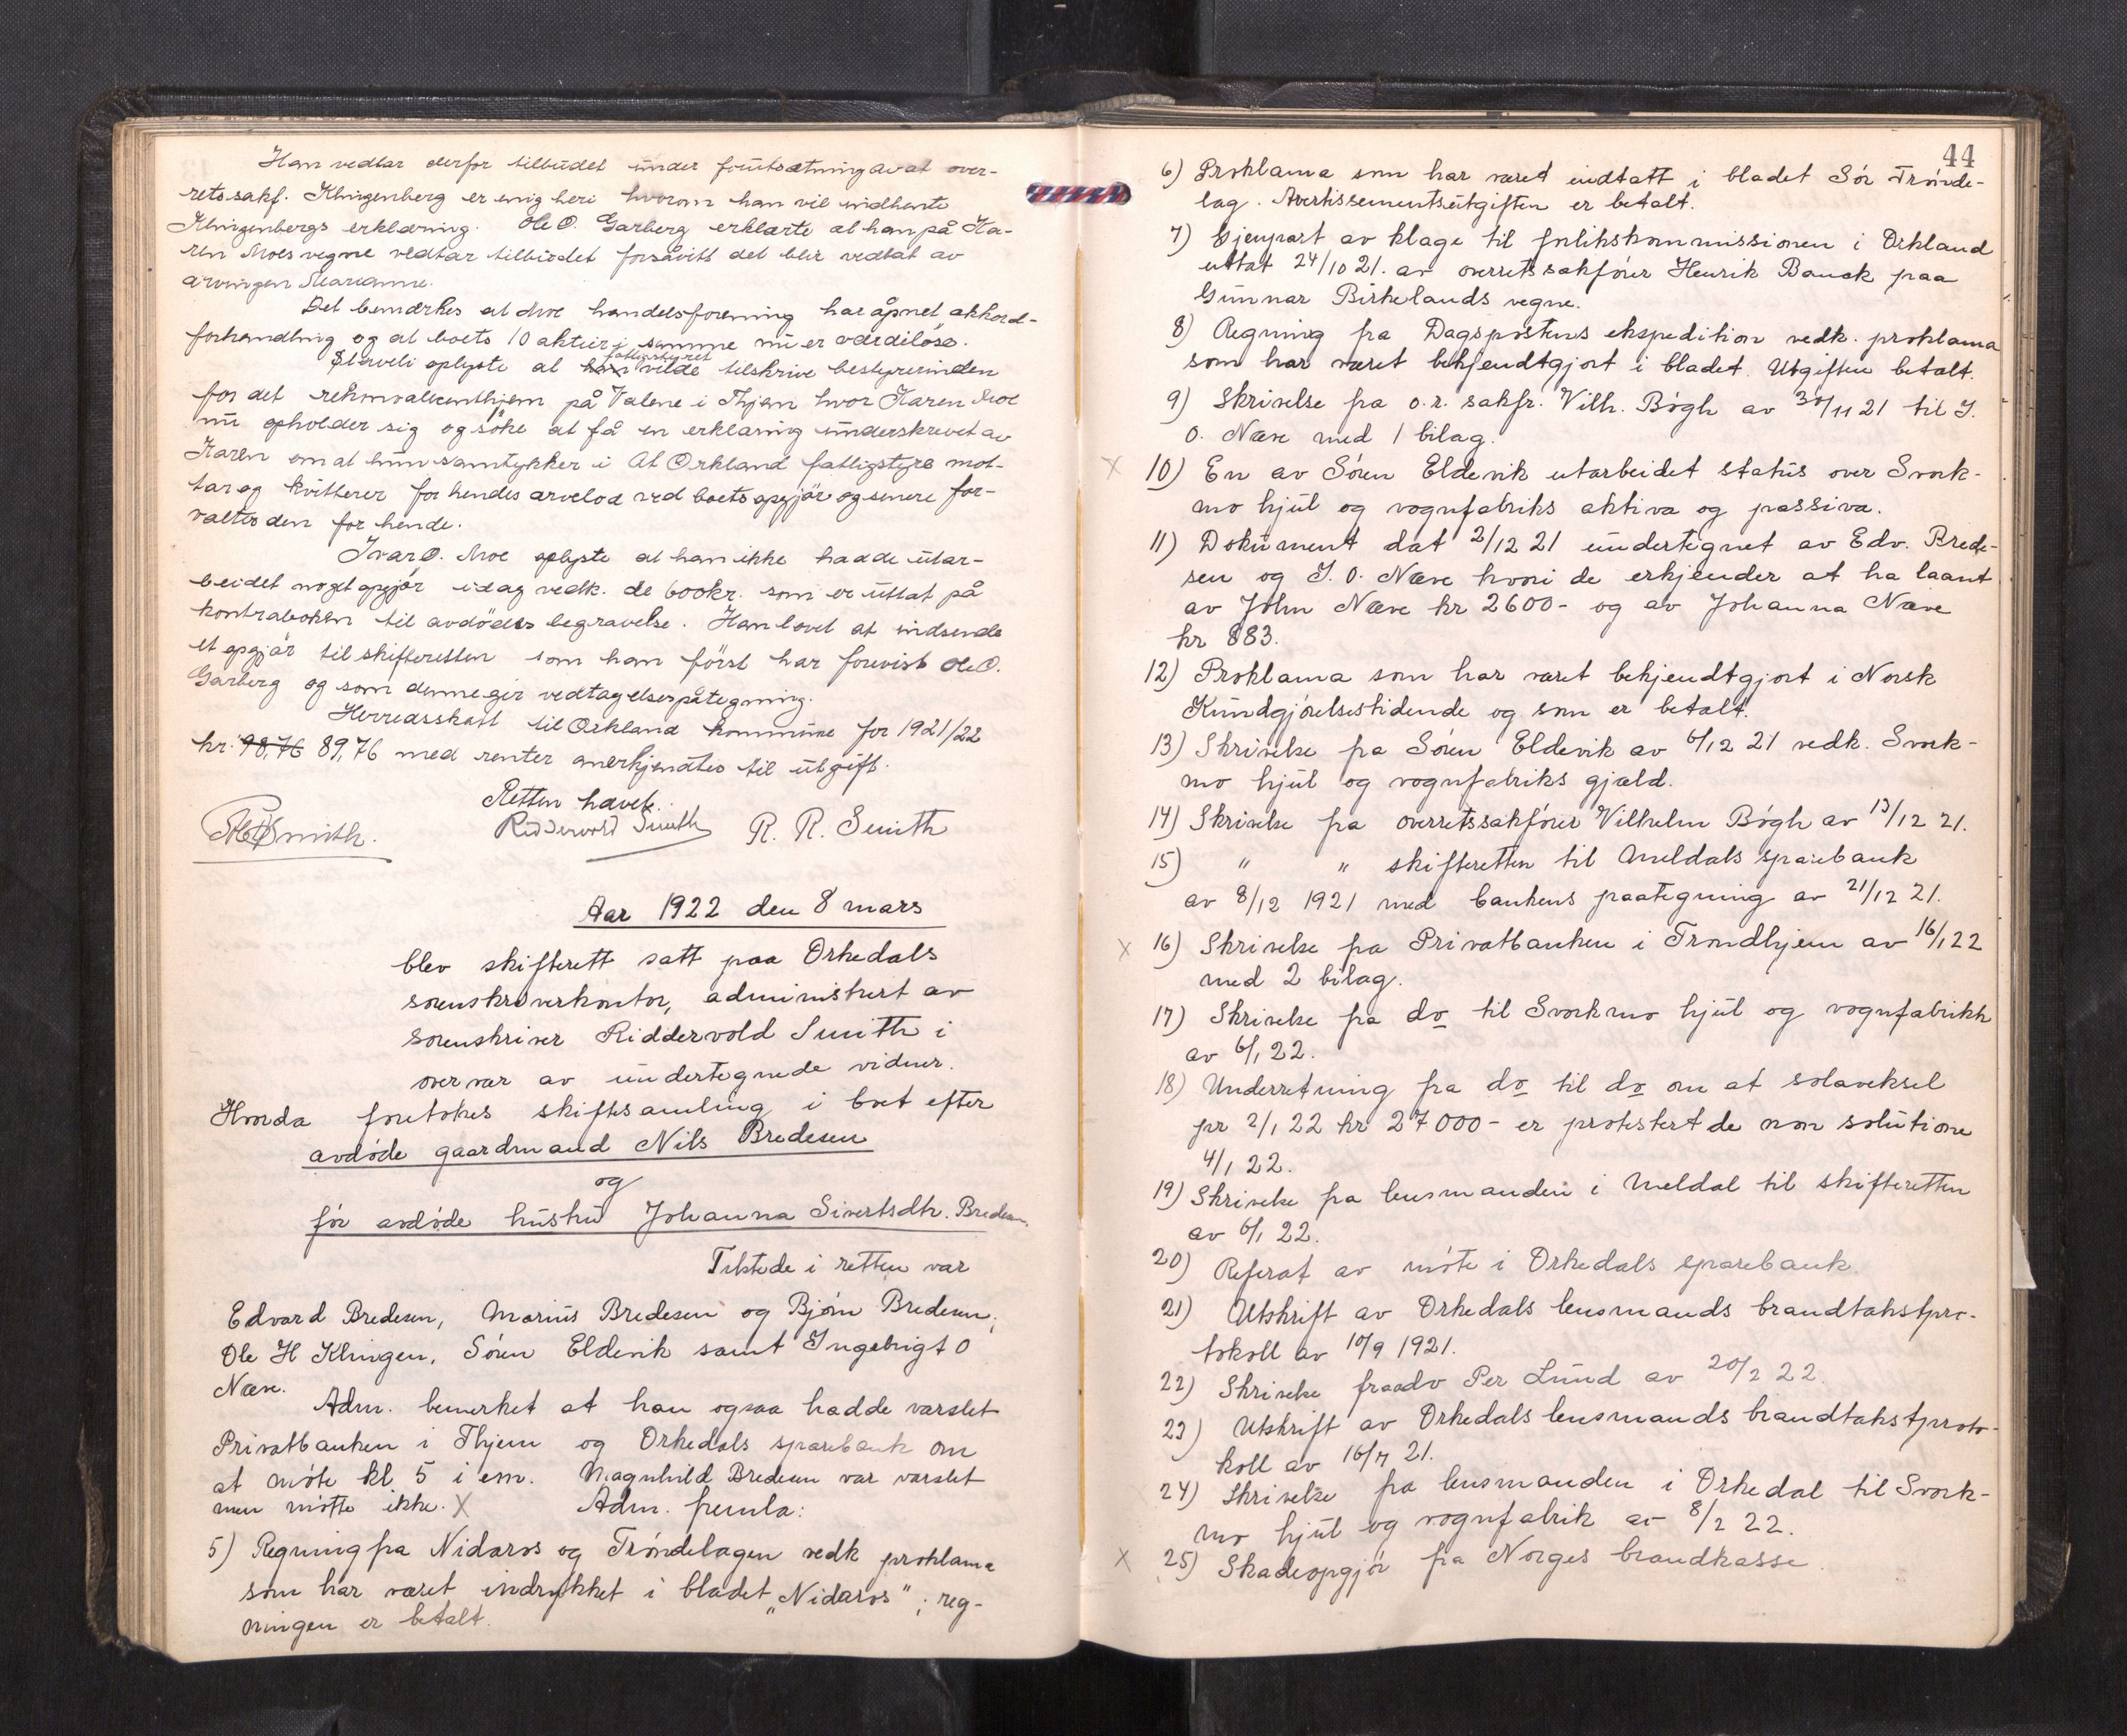 Han vedtar derfor tilbudet under forutsætning av at over-
rets.sakf. Klingenberg er enig heri hvorom han vil indhente
Klingenbergs erklæring. Ole O. Garberg erklærte at han på Ka-
ren Moes vegne vedtar tilbudet forsåvitt det blir vedtat av
arvingen Marianne.
Det bemærkes at Moe handelsforening har åpnet akkord-
forhandling og at boets 10 aktier i samme nu er værdiløse.
fattigstyret
oplyste at han vilde tilskrive bestyrerinden
for det rekonvalecenthjem på i Thjem hvor Karen Moe
nu opholder sig og søke at få en erklæring underskrevet av
Karen om at hun samtykker i at Orkland fattigstyre mot-
tar og kvitterer for hendes arvelod ved boets opgjør og senere for-
valter den for hende.
Ivar O. Moe oplyste at han ikke hadde utar-
beidet noget opgjør idag vedk. de 600 kr. som er uttat på
kontraboken til avdødes begravelse. Han lovet at indsende
et opgjør til skifteretten som han først har forevist Ole O.
Garberg og som denne gir vedtagelsespåtegning.
Herredsskatt til Orkland kommune for 1921/22
kr. 98,76 89,76 med renter anerkjendtes til utgift.
Retten hævet.
Smith. Ridderwold Smith R. R. Smith
Aar 1922 den 8 mars
blev skifterett satt paa Orkedals
sorenskriverkontor, administrert av
sorenskriver Riddervold Smith i
overvær av undertegnede vidner.
Hvorda foretokes skiftesamling i boet efter
avdøde gaardmand Nils Bredesen
og
før avdøde hustru Johanna Sivertsdtr. Bredesen.
Tilstede i retten var
Edvard Bredesen, Marius Bredesen og Bjørn Bredesen,
Ole H Klingen, Søren Eldevik samt Ingebrigt O
Næve.
Adm. bemerket at han ogsaa hadde varslet
Privatbanken i Thjem og Orkedals sparebank om
at møte kl 5 i em. Magnhild Bredesen var varslet
men møtte ikke. X Adm. fremla:
5) Regning fra Nidaros og Trøndelagen vedk proklama
som har været indrykket i bladet „Nidaros"; reg-
ningen er betalt.
44
6) Proklama som har været indtatt i bladet Sør Trønde-
lag. Avertissementsutgiften er betalt.
7) Gjenpart av klage til forlikskommissionen i Orkland
uttat 24/10 21. av overretssakfører Henrik Bauck paa
Gunnar Birkelands vegne.
8) Regning fra Dagspostens ekspedition vedk. proklama
som har været bekjendtgjort i bladet. Utgiften betalt.
9) Skrivelse fra o.r. sakfr. Vilh. Bøgh av 30/11 21 til I.
O. Næve med 1 bilag.
X 10) En av Søren Eldevik utarbeidet status over Svork-
mo hjul og vognfabriks aktiva og passiva.
11) Dokument dat 2/12 21 undertegnet av Edv. Brede-
sen og I. O. Næve hvori de erkjender at ha laant
av John Næve kr 2600- og av Johanna Næve
kr 883.
12) Proklama som har været bekjendtgjort i Norsk
Kundgjørelsestidende og som er betalt.
13) Skrivelse fra Søren Eldevik av 6/12 21 vedk. Svork-
mo hjul og vognfabriks gjæld.
14) Skrivelse fra overretssakfører Vilhelm Bøgh av 13/12 21.
15) " " skifteretten til Meldals sparebank
av 8/12 1921 med bankens paategning av 21/12 21.
X 16) Skrivelse fra Privatbanken i Trondhjem av 16/1 22
med 2 bilag.
17) Skrivelse fra do til Svorkmo hjul og vognfabrikk
av 6/1 22.
18) Underretning fra do til do om at solaveksel
pr 2/1 22 kr 27000- er protestert de non solutione
4/1 22.
19) Skrivelse fra lensmanden i Meldal til skifteretten
av 6/1 22.
20) Referat av møte i Orkedals sparebank.
21) Utskrift av Orkedals lensmands brandtakstpro-
tokoll av 10/9 1921.
22) Skrivelse fra adv Per Lund av 20/2 22.
23) Utskrift av Orkedals lensmands brandtakstproto-
koll av 21.
24) Skrivelse fra lensmanden i Orkedal til Svork-
mo hjul og vognfabrik av 8/2 22.
X 25) Skadeopgjør fra Norges brandkasse.